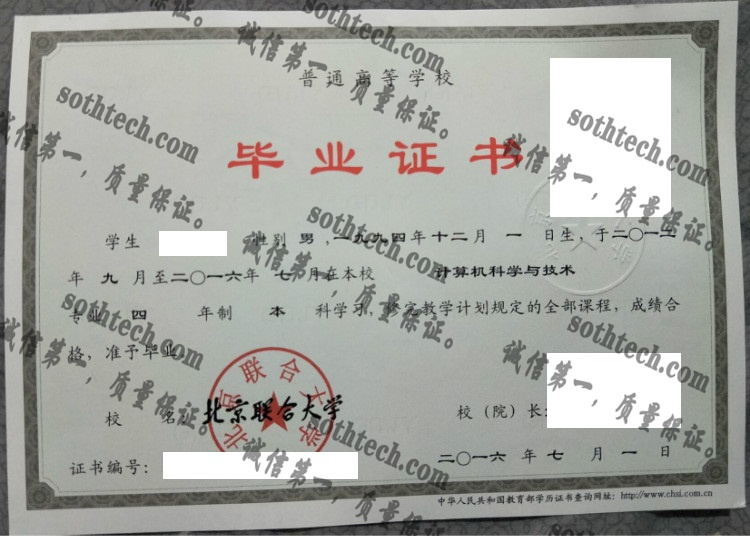 普通高等学校
毕业证书
学生 性别 男，一九九四年十二月 一 日生，于二〇一二
年 九 月至二〇一六年 七 月在本校 计算机科学与技术
专业 四 年制 本 科学习，修完教学计划规定的全部课程，成绩合
格，准予毕业。
北京联合大学
校 名：北京联合大学 校（院）长：
证书编号： 二〇一六 年 七 月 一 日
中华人民共和国教育部学历证书查询网址：http://www.chsi.com.cn
sothtech.com
诚信第一，质量保证。
sothtech.com
诚信第一，质量保证。
sothtech.com
诚信第一，质量保证。
sothtech.com
诚信第一，质量保证。
sothtech.com
诚信第一，质量保证。
sothtech.com
诚信第一，质量保证。
sothtech.com
诚信第一，质量保证。
sothtech.com
诚信第一，质量保证。